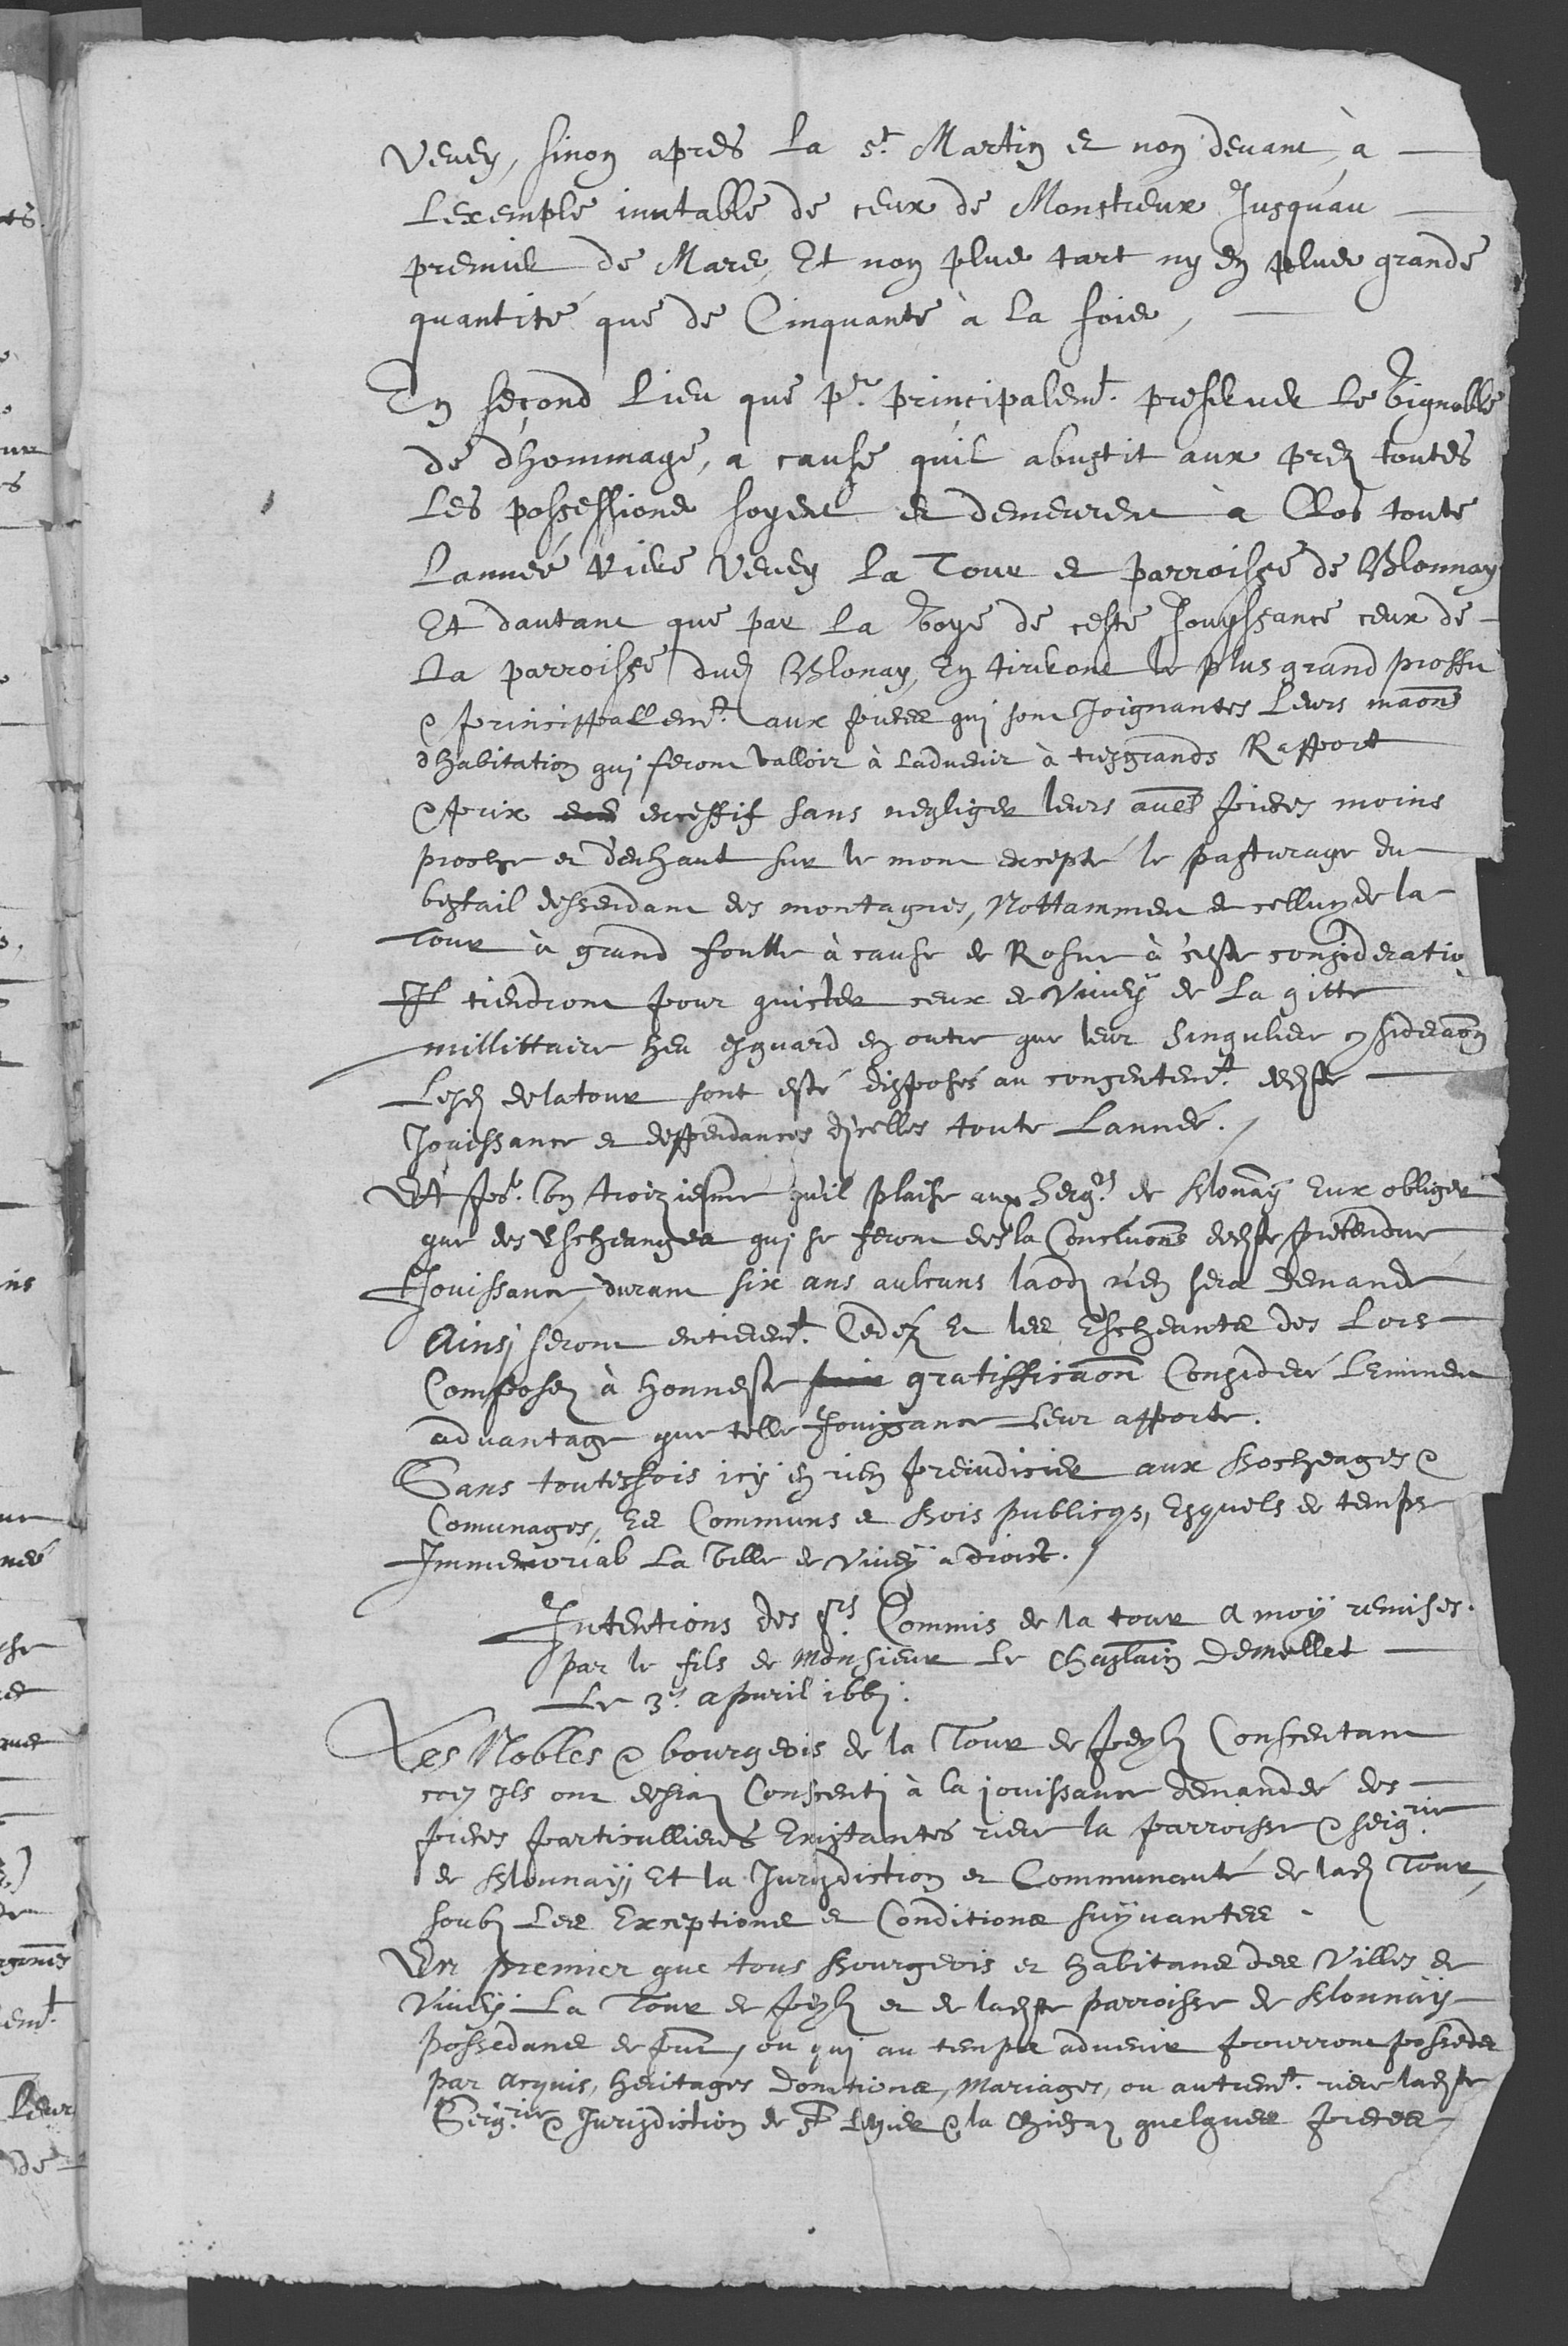 Vevey, sinon apres la St. Martin et non devant, à
Lexemple imitable de ceux de Monstreux Jusquau
premier de Mars, Et non plus tart ny en plus grande
quantité que de Cinquante à la fois,
En second Lieu que pr. principalemt. preserver le Vignoble
de dhommage, a cause quil aboutit aux prez toutes
Les possessions soyent et demeurent à Clos toute
Lannée Riere Vevey La Tour et parroisse de Blonnay
Et dautant que par La voye de ceste Jouyssance ceux de
La parroisse dud Blonay, En tireront le plus grand proffit
& principallemt. aux pieces qui sont Joignantes Leurs maons
dhabitation qui feront valloir à Ladvenir à tresgrands Rapport
& prix excessif sans negliger leurs aues pieces moins
proche et denhaut sur le mont excepté le pasturage du
bestail dessendant des montagnes, Nottamment et celluy de la
Tour à grand foulle à cause de à ceste consideratio
Il tiendront pour quicter ceux de Vivey de La gitte
millittaire heu esguard en outre que leur singuliere
Lesd de la tour sont esté disposés au consentemt. de
Jouissance et deppendances dicelles toute Lannée.
Et pr. Un troiziesme qu'il plaise aux Seigrs de Blonay Eux obliger
que des Escheanges qui se feront des la Concluons de pretendue
Jouissance, durant six ans aulcuns laod n'en sera demandé
Ains seront entieremt. Cedéz Et les Escheants des Lors
Composez à honneste gratifficaon Consideré Leminent
advantage que telle Jouissance Leur apporte.
Sans toutesfois icy en rien preiudicier aux Bocheages &
Comunages, Es Communs et Bois publicqs, Esquels de temps
Immemorial La Ville de Vivey a droict.
Intentions des Srs Commis de la tour a moy remises
par le fils de Monsieur Le Chastlain Demellet
Le 3e. apvril 166j.
Les Nobles & bourgeois de la Tour de Peylz Consentant
coe Ils ont desiaz Consenti à la jouissance demandée des
pieces particullieres Existantes riere la parroisse & seigrie
de Blonnay, Et la Jurisdiction et Communauté de lad Tour,
soub Les Exceptions et Conditions suyvantes.
En premier que tous Bourgeois et habitans des Villes de
Vivey La Tour de Peylz et de lad parroisse de Blonnay
possedans de , ou qui au temps advenir pourront posseder
par Acquis, heritages Donations, Mariages, ou autremt. riere lad
Seigrie & Jurisdiction de St Legier & la Chiesaz quelques pieces